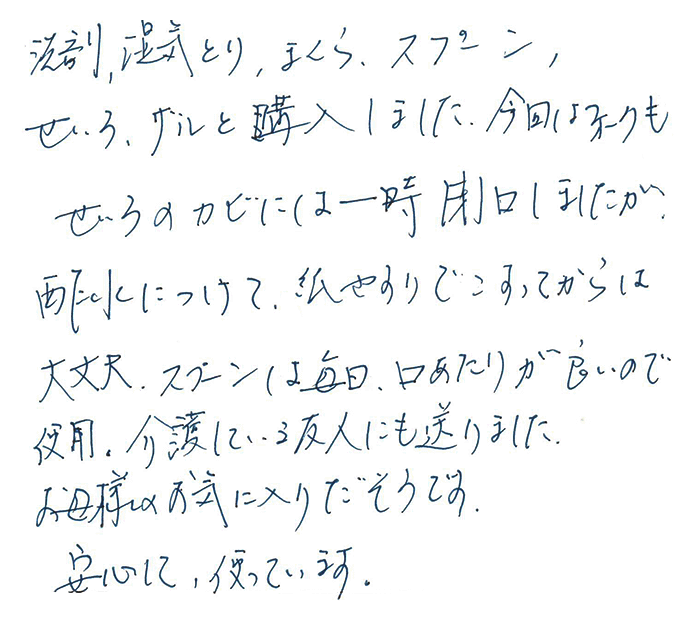 洗剤,湿気とり,まくら、スプーン,
せいろ、ザルと購入しました.今回はフォークも
せいろのカビには一時閉口しましたが、
酢水につけて、紙やすりでこすってからは
大丈夫.スプーンは毎日、口あたりが良いので
使用。介護している友人にも送りました.
お母様のお気に入りだそうです.
安心して,使っています。